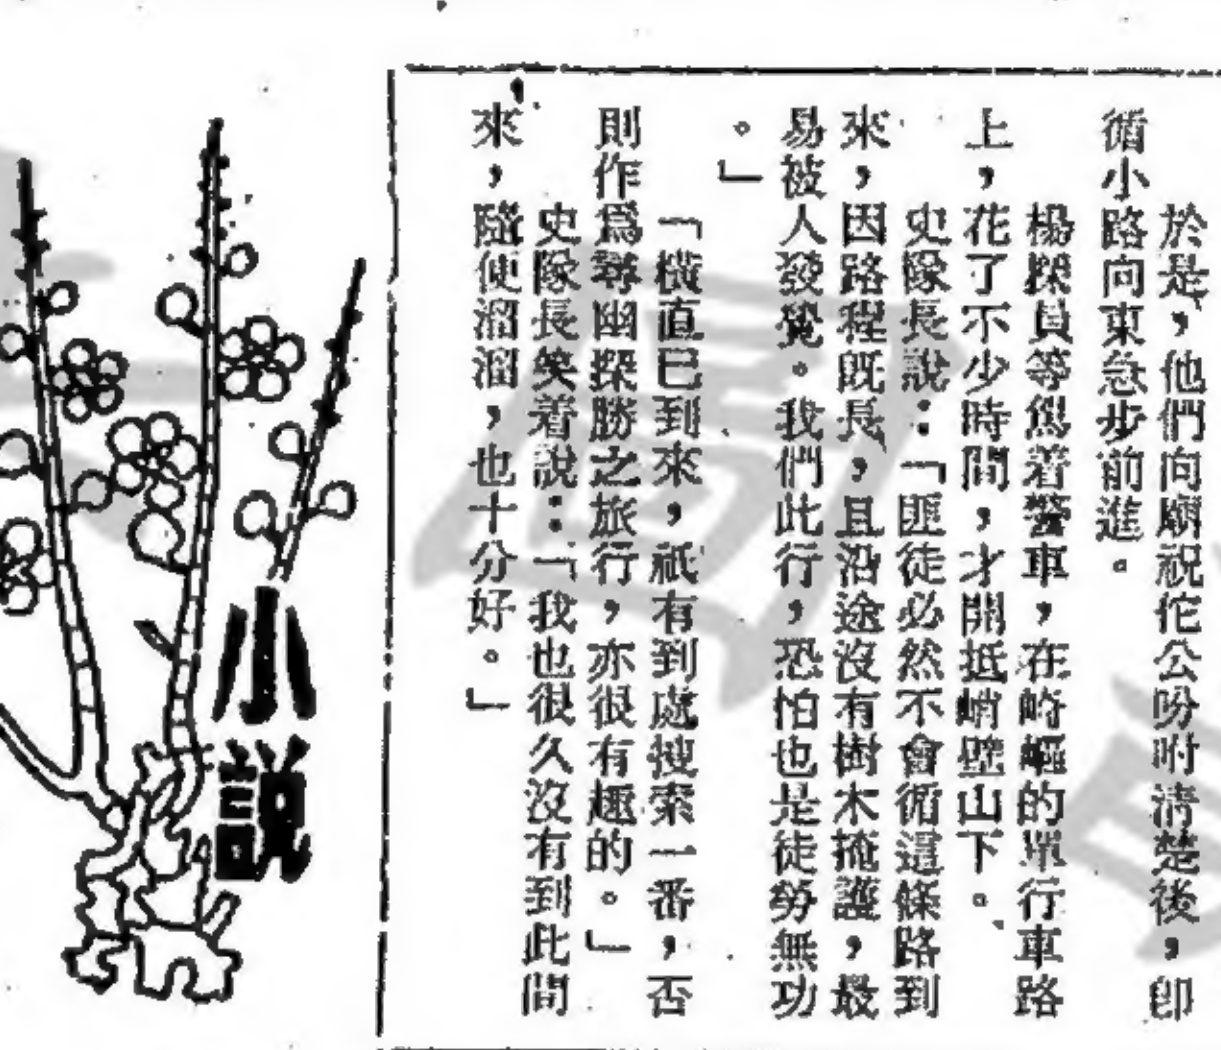 於是，他們向廟祝佗公吩咐清楚後，卽
循小路向東急步前進。
楊探員等駕着警車，在崎嶇的單行車路
上，花了不少時間，才開抵峭壁山下。
史隊長說：「匪徒必然不會循這條路到
來，因路程既長，且沿途沒有樹木掩護，最
易被人發覺。我們此行，恐怕也是徒勞無功
。」
「橫直已到來，祇有到處搜索一番，否
則作爲尋幽探勝之旅行，亦很有趣的。」
史隊長笑着說：「我也很久沒有到此間
來，隨便溜溜，也十分好。」
小說